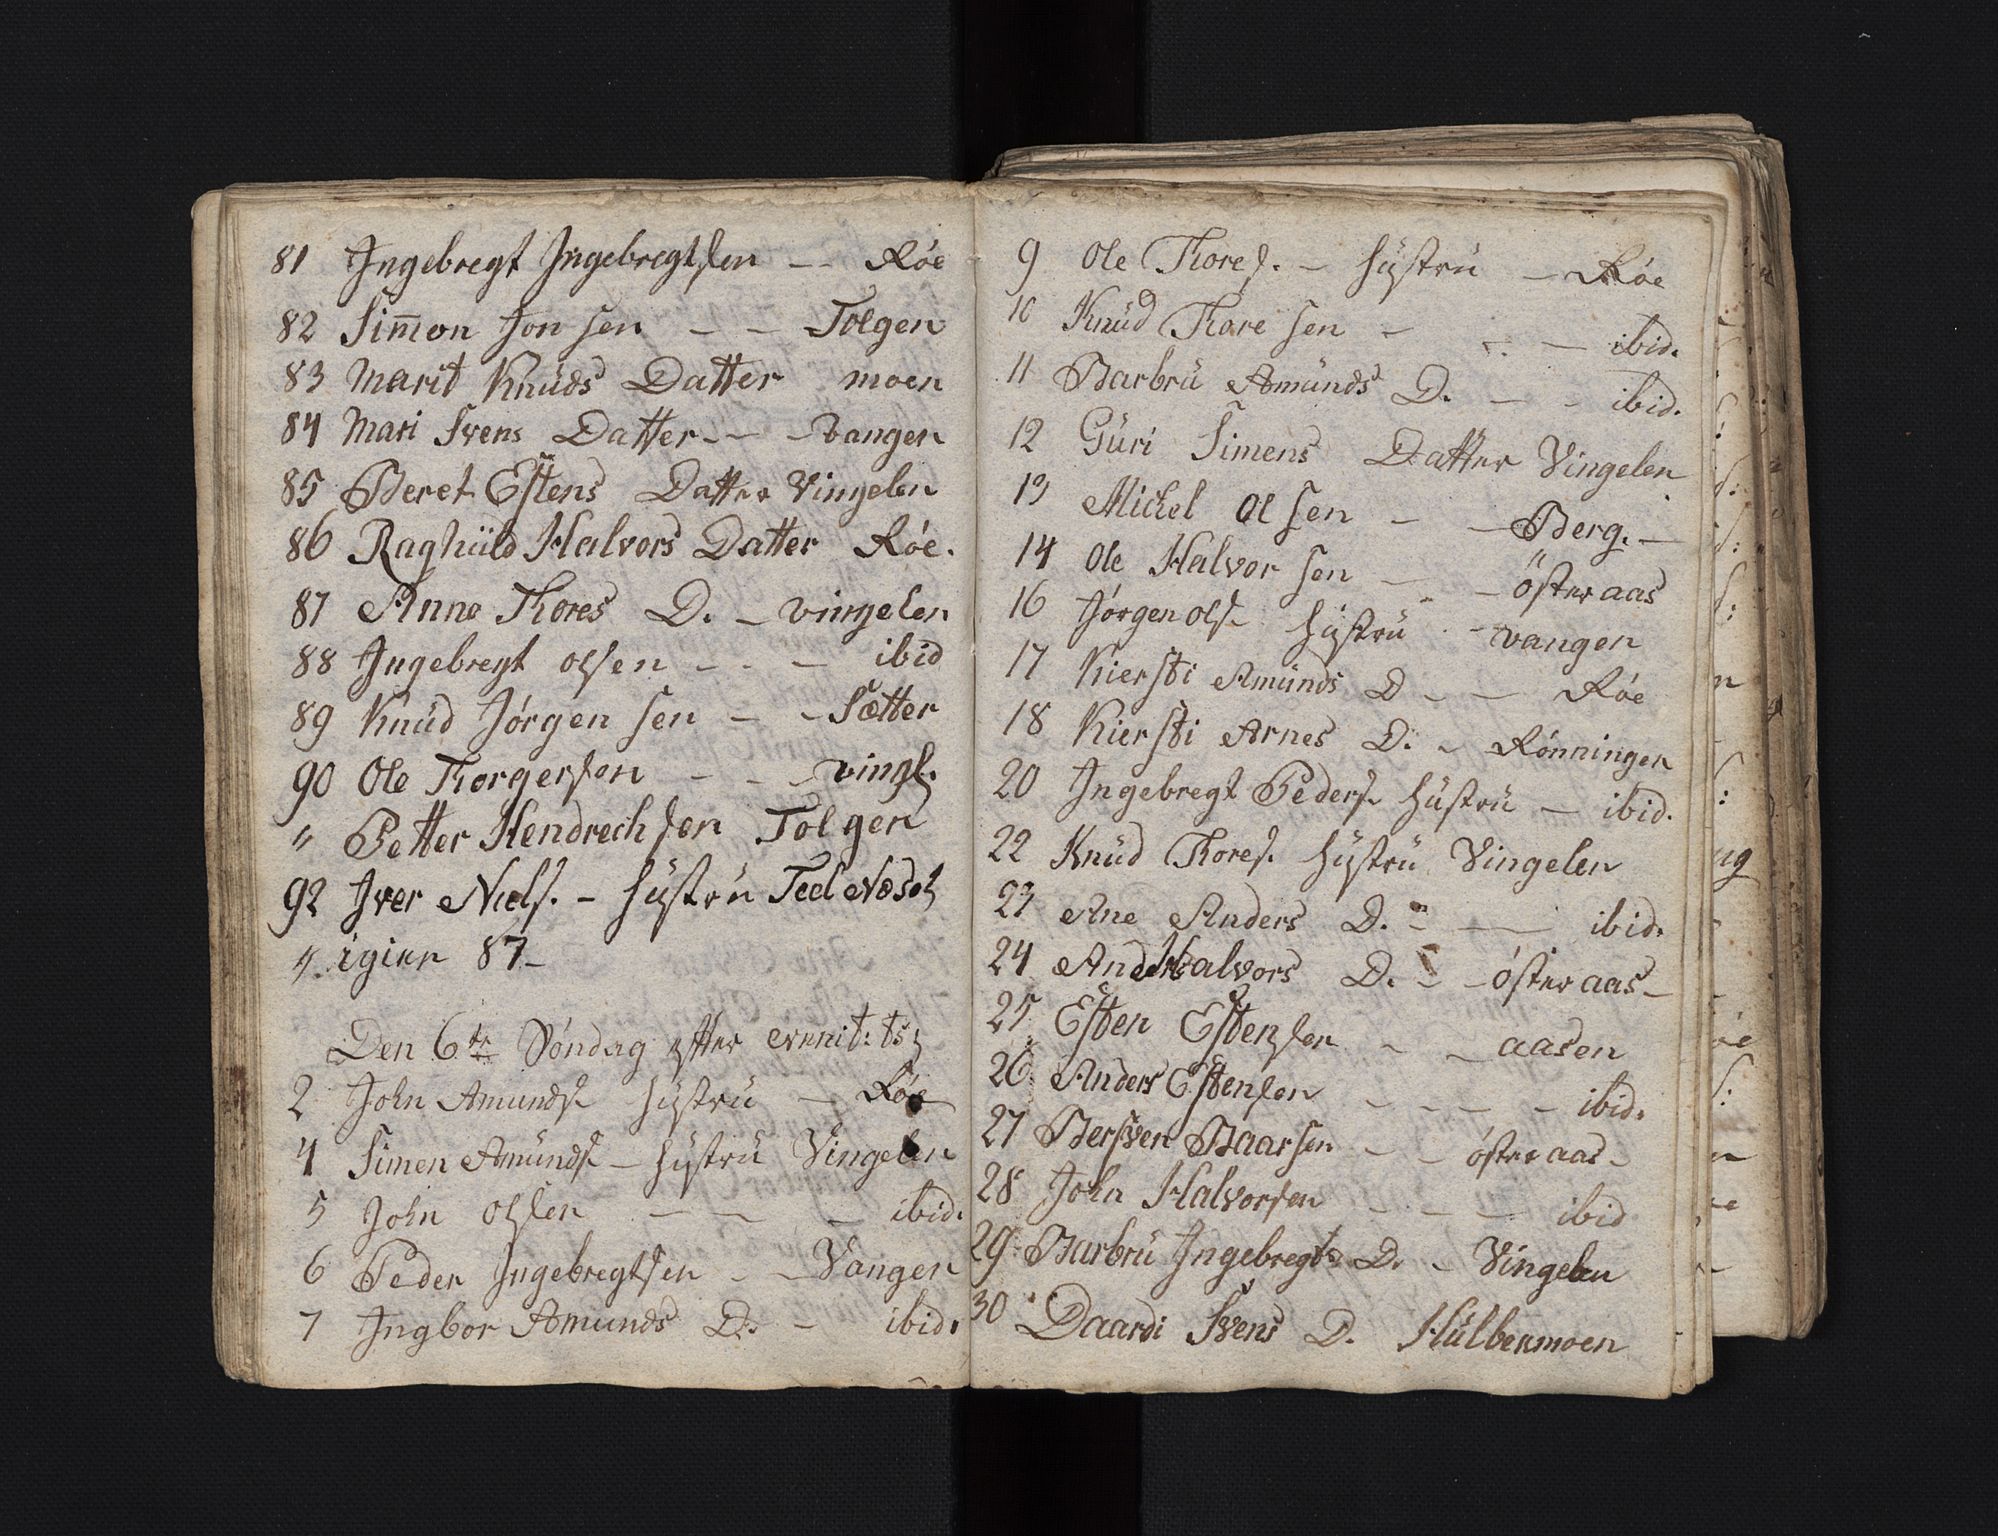 81 Ingebregt Ingebregtsen -- Røe
82 Sim̅on Jonsen - - Tolgen
83 Marit Knuds Datter moen
84 Mari Svens Datter - - vangen
85 Beret Estens Datter Vingelen
86 Raghild Halvors Datter Røe.
87 Anne Thores D. - vingelen
88 Ingebregt olsen - - - ibid
89 Knud Jørgensen - - Sætter
90 Ole Thorgersen - - - vingl.
" Petter Hendrechsen Tolgen
92 Iver Niels. - hustru
". igien 87 -
Den 6te Søndag efter
2 John Amunds. hustru - Røe
4 Simen Amunds. - hustru Vingelen
5 John olsen - - - ibid.
6 Peder Ingebregtsen - - Vangen
7 Ingbor Amunds D. - ibid.
9 Ole Thores. - hustru - Røe
10 Knud Thoresen - - - ibid.
11 Barbru Amunds D. - - ibid.
12 Guri Simens Datter Vingelen
13 Michel olsen - - Berg. -
14 Ole Halvorsen - - østeraas
16 Jørgen ols. hustru - vangen
17 Kiersti Amunds D - - Røe
18 Kiersti Arnes D. - Rønningen
20 Ingebregt Peders. hustru - ibid.
22 Knud Thores. hustru Vingelen
23 Ane Anders D. - - - ibid.
24 Halvors D. - - østeraas -
25 Esten Estensen - - aasen
26 Anders Estensen - - - - ibid.
27 Bersven Baarsen - - østeraas -
28 John Halvorsen - - - ibid
29 Barbru Ingebregts D. - Vingelen
30 Daardi Svens D. Hulbermoen